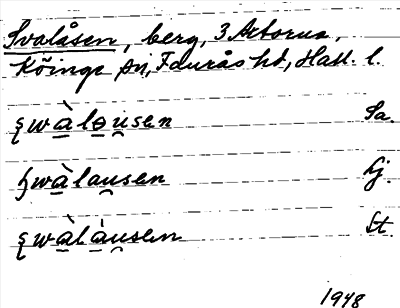 Svalåsen, berg, 3 Artorna,
Köinge sn, Faurås hd, Hall. l.
ʂwàlou̯sen Sa.
ɧwàlau̯sen Gj.
ʂwàlàu̯sen St.
1948